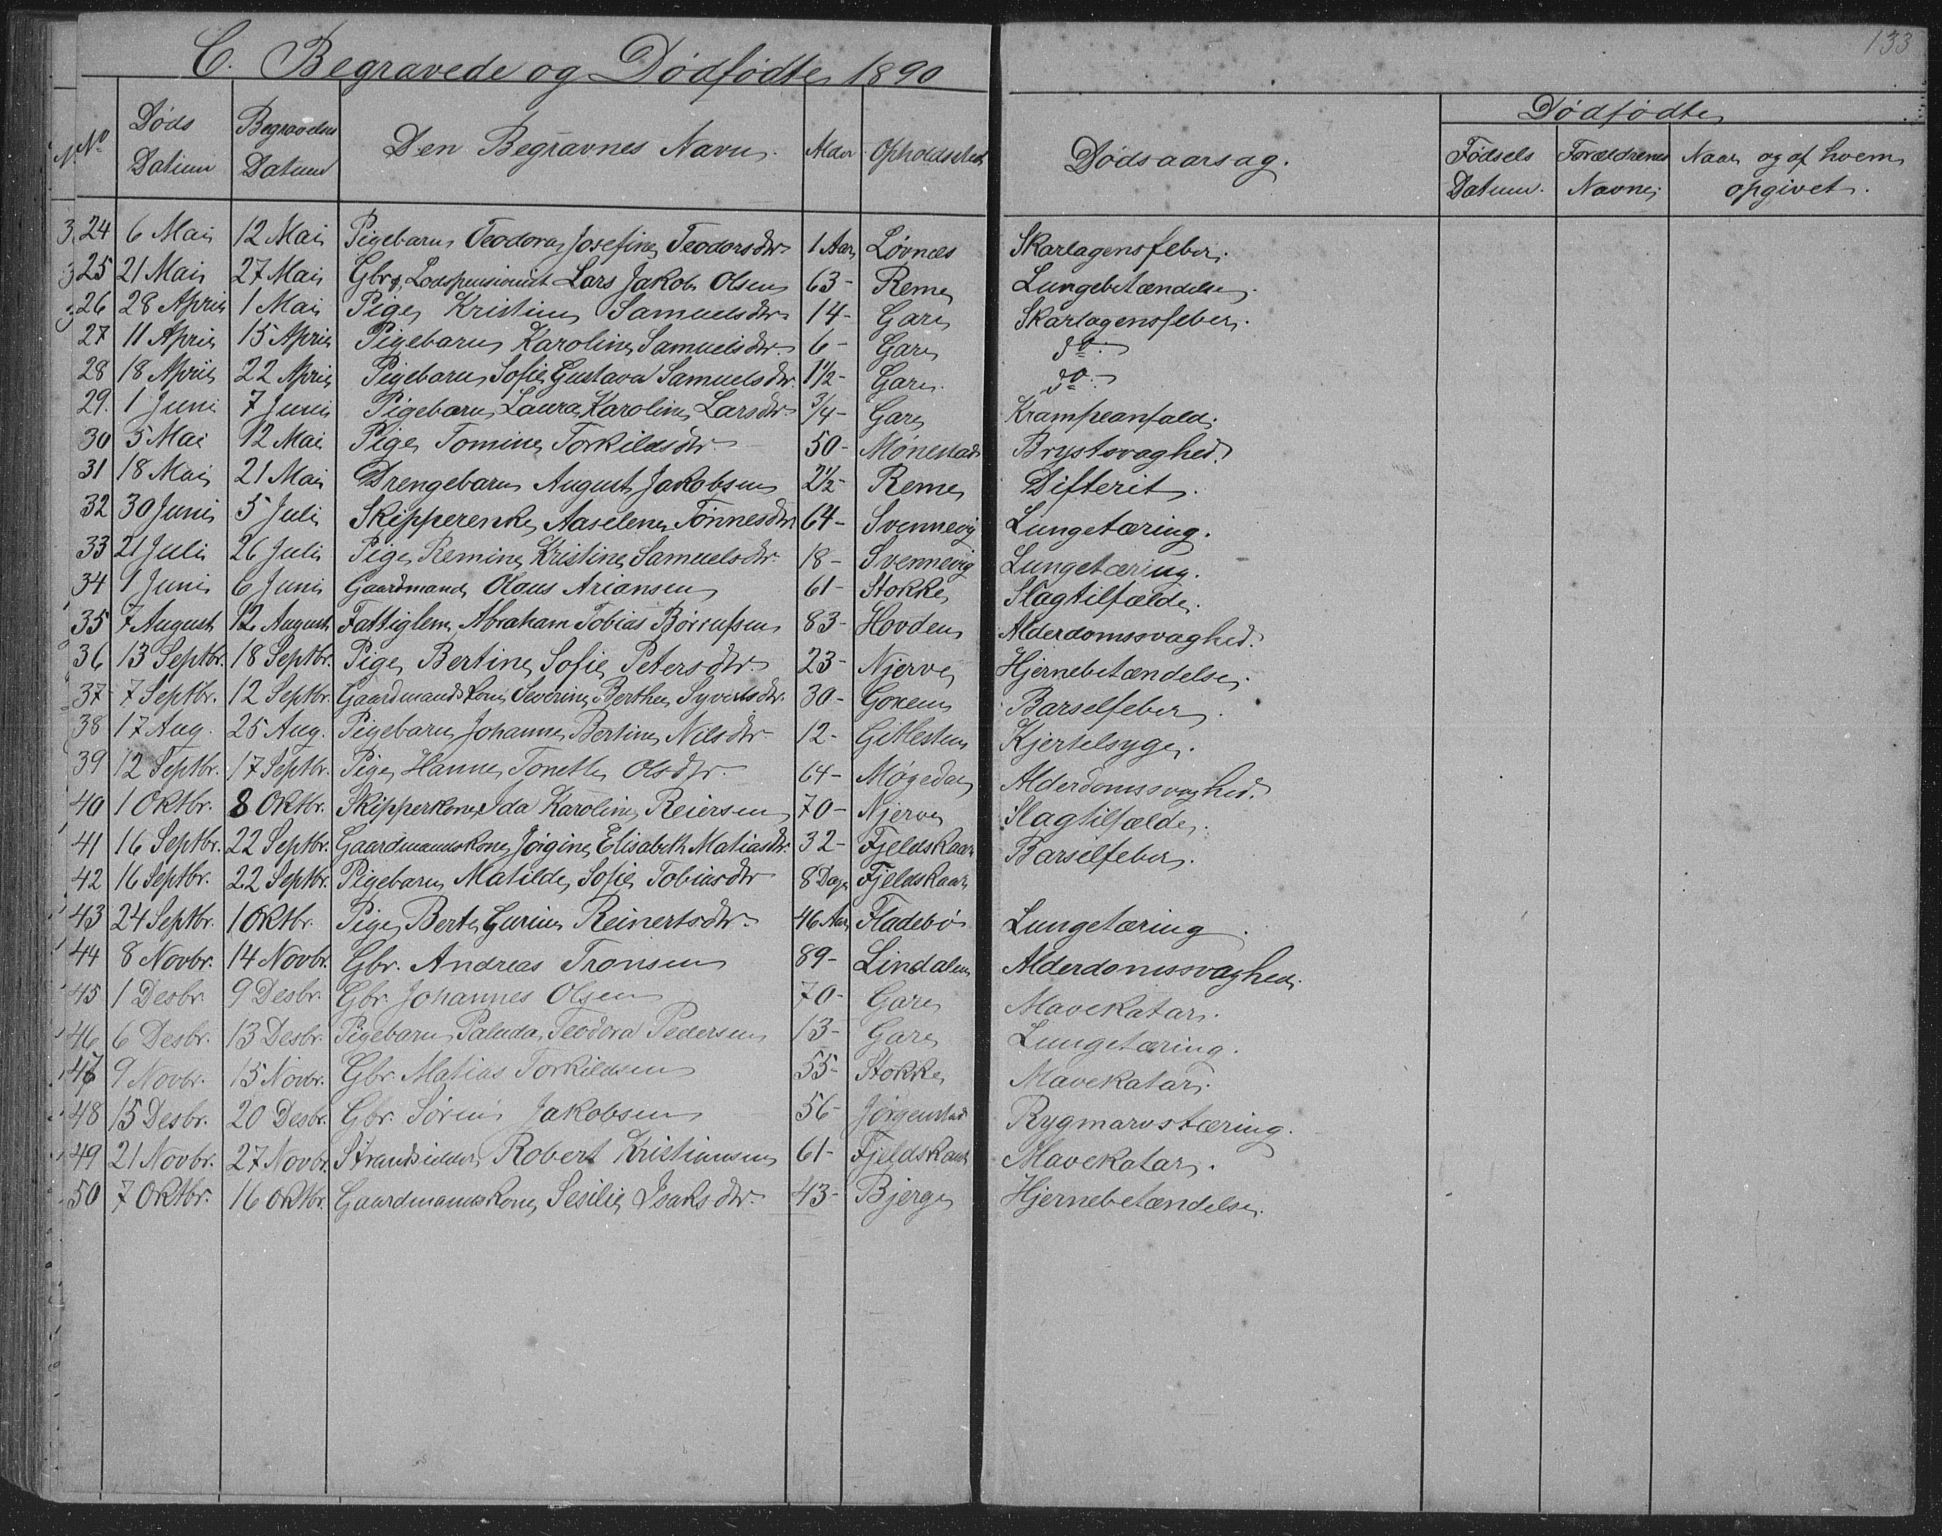 133
C. Begravede og Dødfødte 1890
No Døds Datum Begravelses Datum Den Begravnes Navn. Alder Opholdssted Dødsaarsag. Dødfødte
Fødsels Datum. Forældrenes Navne. Naar og af hvem opgivet.
24 6 Mai 12 Mai Pigebarn Teodora Josefine Teodorsdtr. 1 Aar Løvnæs Skarlagensfeber.
25 21 Mai 27 Mai Gbr. Lodspensionist Lars Jakob Olsen 63 - Reme Lungebetændelse.
26 28 April 1 Mai Pige Kristine Samuelsdtr. 14 - Gare Skarlagensfeber.
27 11 April 15 April Pigebarn Karoline Samuelsdtr. 6 - Gare do.
28 18 April 22 April Pigebarn Sofie Gustava Samuelsdtr. 1 1/2 - Gare. do.
29. 1 Juni 7 Juni Pigebarn Laura Karoline Larsdtr. 3/4 - Gare Krampeanfald.
30 5 Mai 12 Mai Pige Tomine Torkildsdtr. 50 - Mønestad Brystsvaghed.
31 18 Mai 21 Mai Drengebarn August Jakobsen 2 1/2 - Reme Difterit.
32 30 Juni 5 Juli Skipperenke Aaselene Tønnesdtr. 64 - Svennevig Lungetæring.
33 21 Juli 26 Juli Pige Remine Kristine Samuelsdtr. 18 - Svennevig Lungetæring.
34 1 Juni 6 Juni Gaardmand Olaus Ariansen 61 - Stokke Slagtilfælde.
35 7 August 12 August Fattiglem Abraham Tobias Børrufsen 83 - Hovden Alderdomssvaghed.
36 13 Septbr. 18 Septbr. Pige Bertine Sofie Petersdtr. 23 - Njerve Hjernebetændelse.
37 7 Septbr. 12 Septbr. Gaardmandskone Severine Berthea Syvertsdtr. 30 - Goxem Barselfeber.
38 17 Aug. 25 Aug. Pigebarn Johanne Bertine Nilsdtr. 12 - Gitlesten Kjertelsyge.
39 12 Septbr. 17 Septbr. Pige Hanne Tonette Olsdtr. 64 - Møgedal Alderdomssvaghed.
40 1 Oktbr. 8 Oktbr. Skipperkone Ida Karoline Reiersen 70 - Njerve Slagtilfælde.
41 16 Septbr. 22 Septbr. Gaardmandskone Jørgine Elisabeth Matiasdtr. 32 - Fjeldskaar Barselfeber.
42 16 Septbr. 22 Septbr. Pigebarn Matilde Sofie Tobiasdtr 8 Dage Fjeldskaar
43 24 Septbr. 1 Oktbr. Pige Berte Gurine Reinertsdtr. 46 Aar Fladebø Lungetæring.
44 8 Novbr. 14 Novbr. Gbr. Andreas Tronsen 89 - Lindalen Alderdomssvaghed.
45 1 Desbr. 9 Desbr. Gbr. Johannes Olsen 70 - Gare Mavekatar.
46 6 Desbr. 13 Desbr. Pigebarn Paluda Teodora Pedersen 13 - Gare Lungetæring.
47 9 Novbr. 15 Novbr. Gbr. Matias Torkildsen 55 - Stokke Mavekatar.
48 15 Desbr. 20 Desbr. Gbr. Søren Jakobsen 56 - Jørgenstad Rygmarvstæring.
49 21 Novbr. 27 Novbr. Strandsidder Robert Kristiansen 61 - Fjeldskaar Mavekatar.
50 7 Oktbr. 16 Oktbr. Gaardmandskone Sesilie Isaksdtr. 43 - Bjerge Hjernebetændelse.